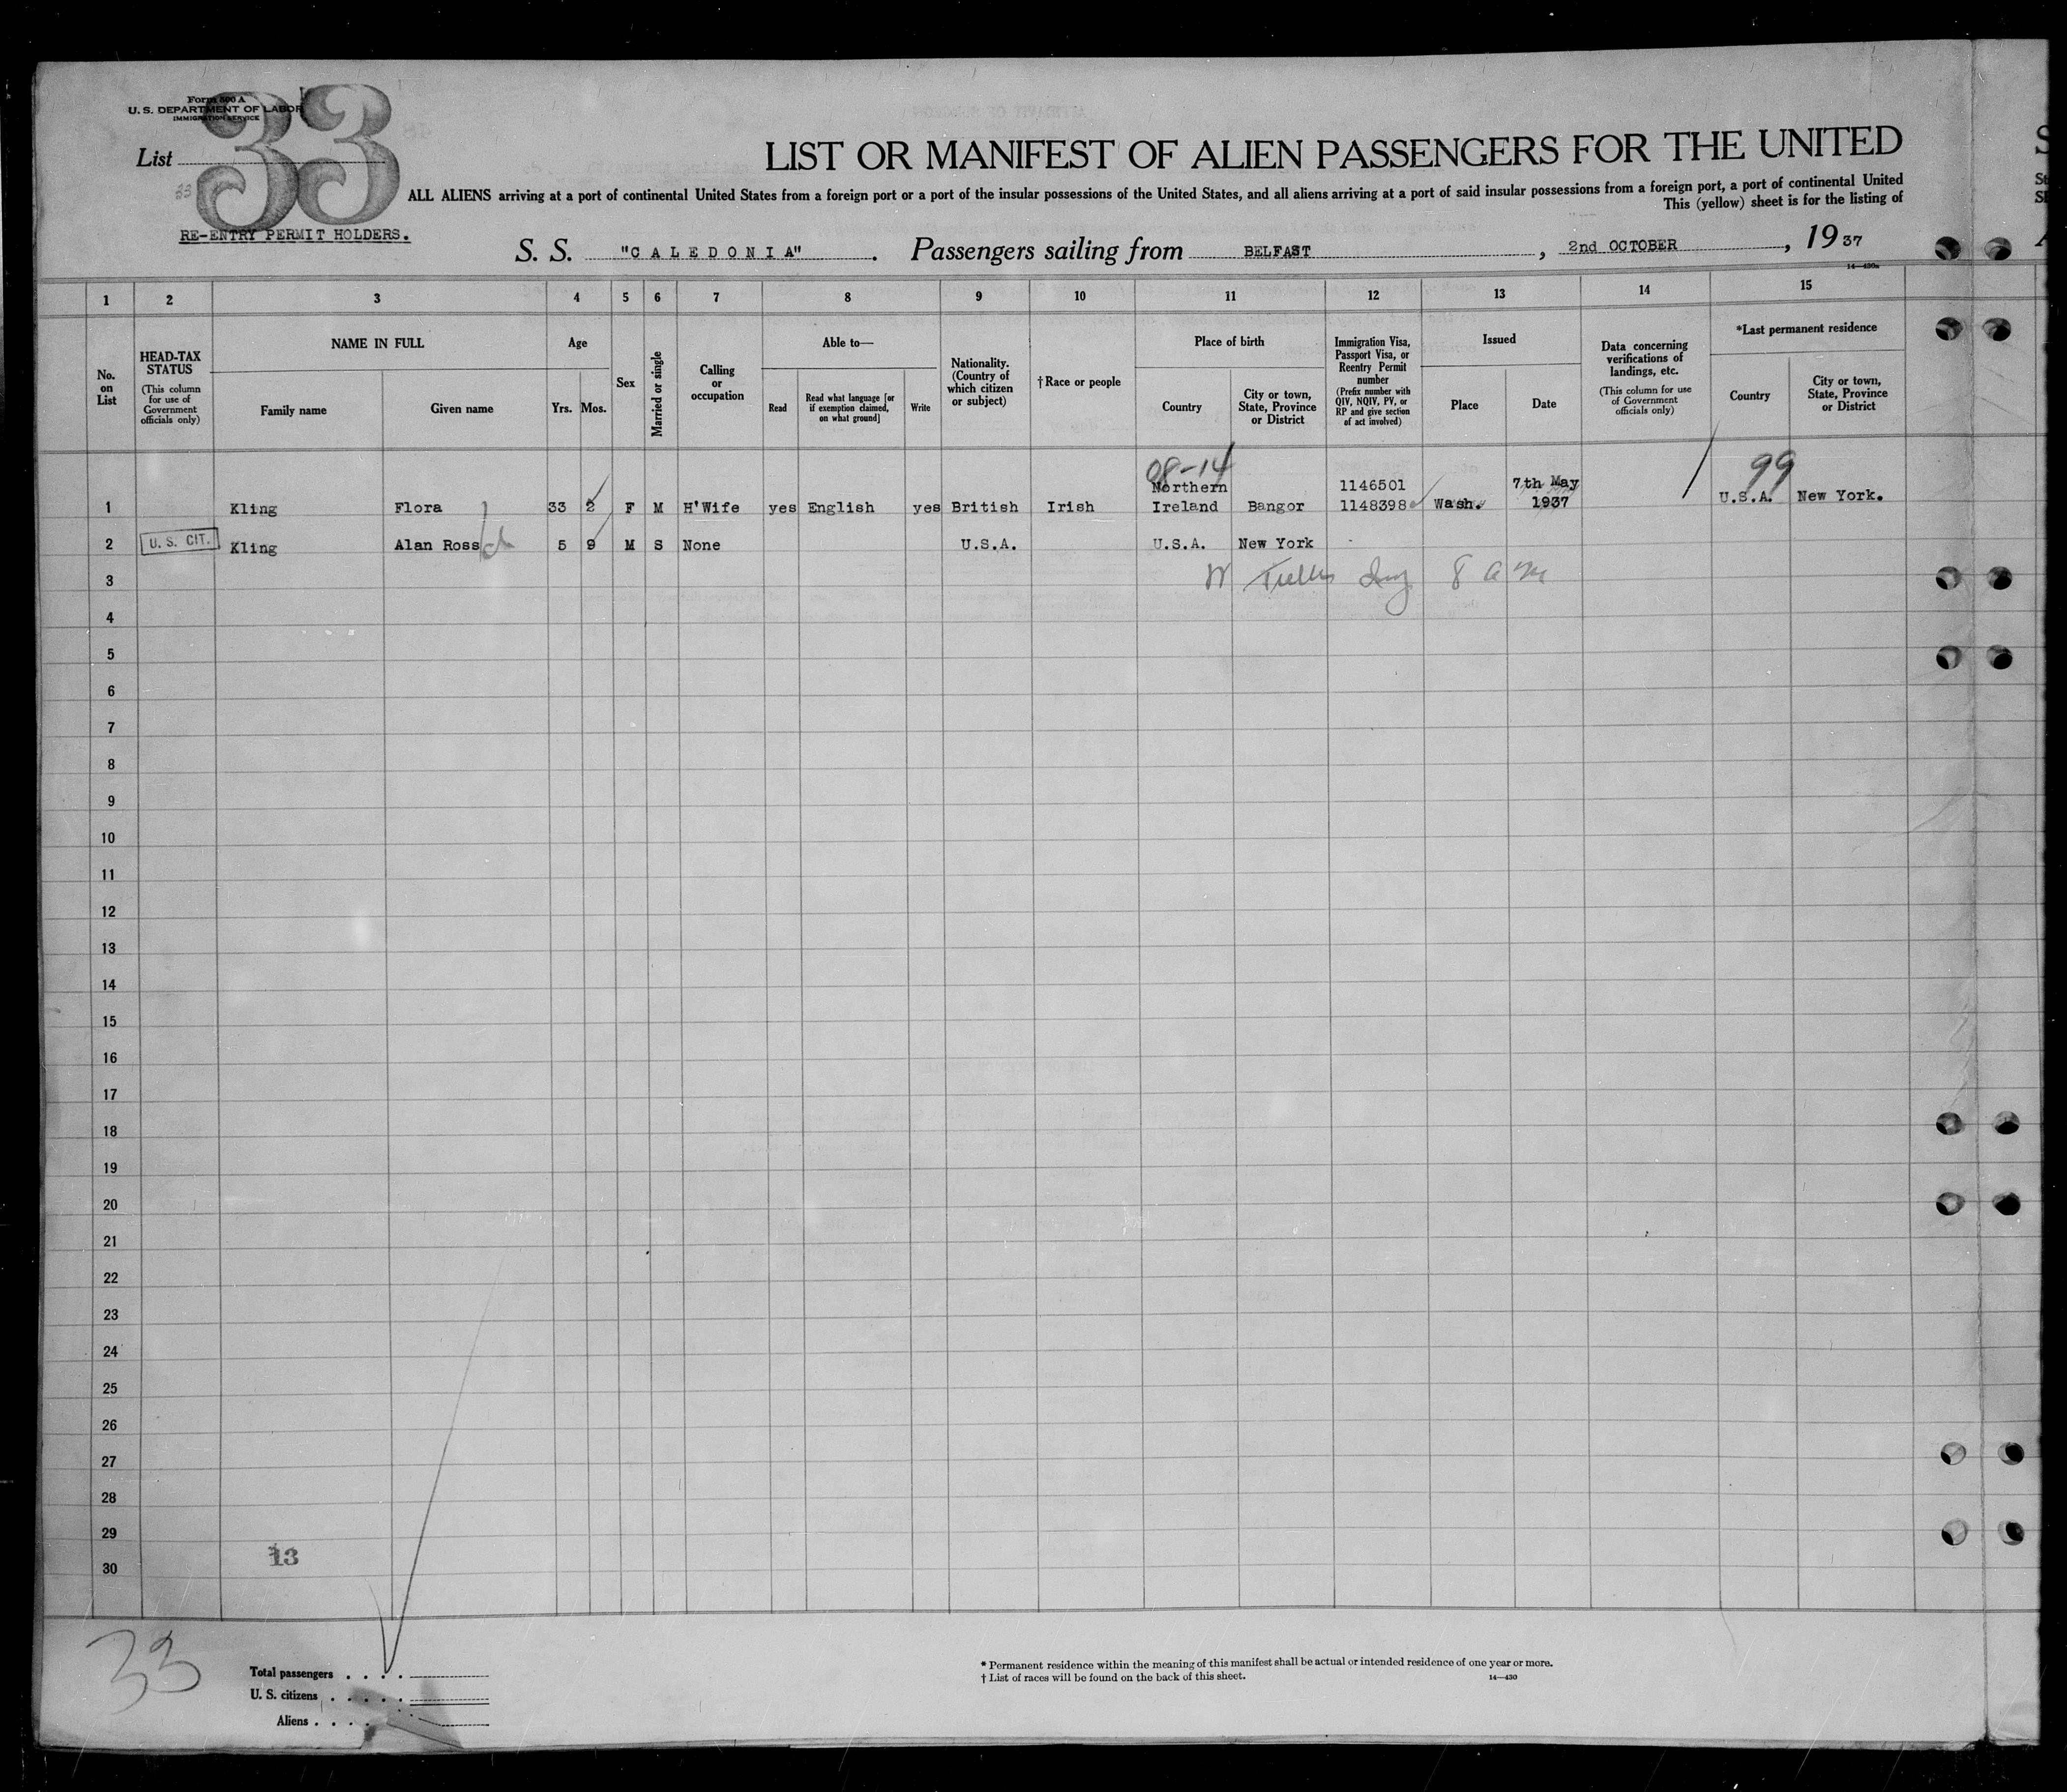 Form 500 A
U. S. DEPARTMENT OF LABOR
IMMIGRATION SERVICE
List 33
33
RE-ENTRY PERMIT HOLDERS.
LIST OR MANIFEST OF ALIEN PASSENGERS FOR THE UNITED
ALL ALIENS arriving at a port of continental United States from a foreign port or a port of the insular possessions of the United States, and all aliens arriving at a port of said insular possessions from a foreign port, a port of continental United
This (yellow) sheet is for the listing of
S. S. "CALEDONIA". Passengers sailing from BELFAST, 2nd OCTOBER, 19 37
1 2 3 4 5 6 7 8 9 10 11 12 13 14 15
No. on List
HEAD-TAX STATUS
(This column for use of Government officials only)
NAME IN FULL
Family name Given name
Age
Yrs. Mos.
Sex
Married or single
Calling or occupation
Able to—
Read
Read what language [or if exemption claimed, on what ground]
Write
Nationality. (Country of which citizen or subject)
†Race or people
Place of birth
Country
City or town, State, Province or District
Immigration Visa, Passport Visa, or Reentry Permit number
(Prefix number with QIV, NQIV, PV, or RP and give section of act involved)
Issued
Place Date
Data concerning verifications of landings, etc.
(This column for use of Government officials only)
*Last permanent residence
Country
City or town, State, Province or District
08-14 99
Northern 1146501 7th May
1 Kling Flora 33 2 F M H'Wife yes English yes British Irish Ireland Bangor 1148398 Wash. 1937 U.S.A. New York.
2 U. S. CIT. Kling Alan Ross 5 9 M S None U.S.A. U.S.A. New York
3 8 am
4
5
6
7
8
9
10
11
12
13
14
15
16
17
18
19
20
21
22
23
24
25
26
27
28
29
13
30
33
Total passengers . . . .
U. S. citizens . . . . .
Aliens . . . .
* Permanent residence within the meaning of this manifest shall be actual or intended residence of one year or more.
† List of races will be found on the back of this sheet. 14—430